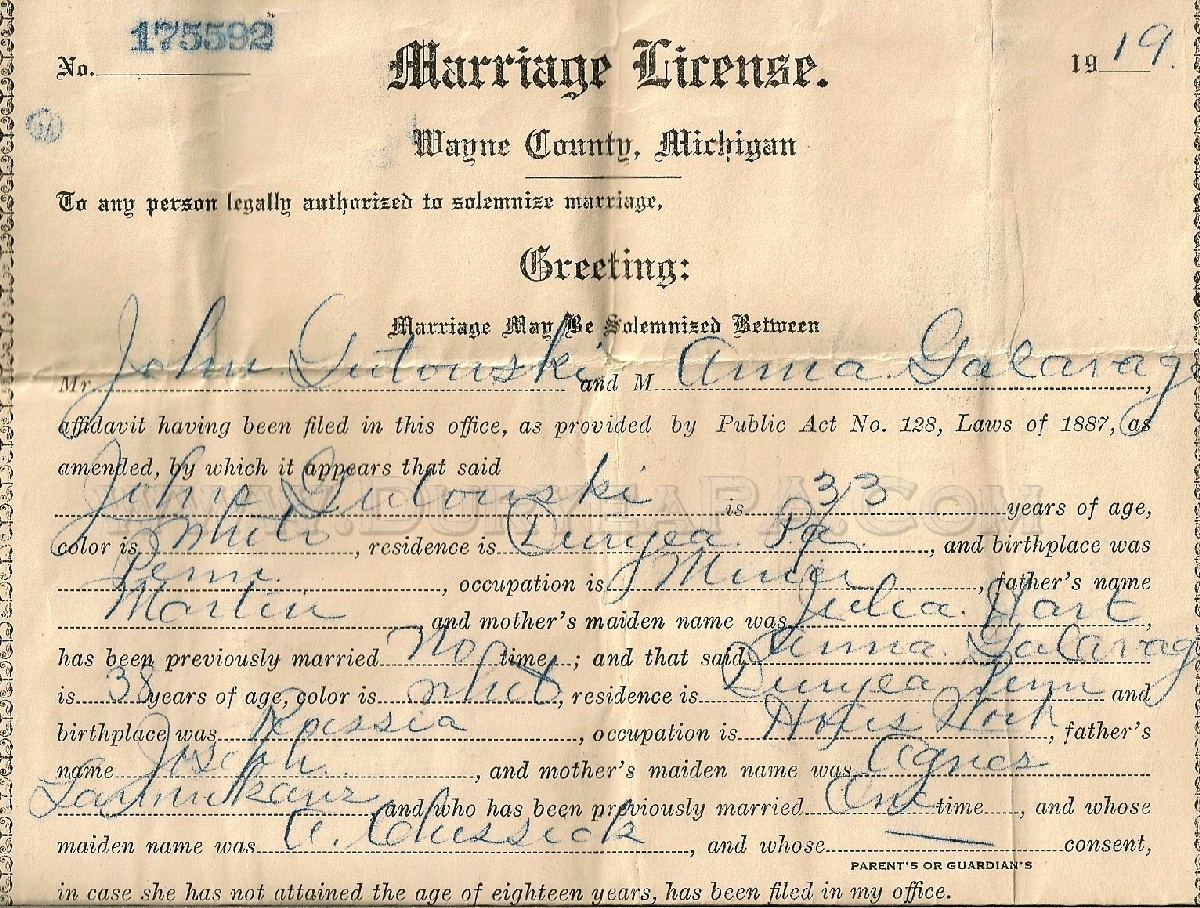 175592
No.
Marriage License.
1919.
Wayne County, Michigan
To any person legally authorized to solemnize marriage,
Greeting:
Marriage May Be Solemnized Between
Mr John Gutouski and M Anna Galavage,
affidavit having been filed in this office, as provided by Public Act No. 128, Laws of 1887, as
amended, by which it appears that said
John Gutouski is 33 years of age,
color is White, residence is Duryea Pa, and birthplace was
Penn., occupation is Miner, father's name
Martin and mother's maiden name was Julia Hart,
has been previously married No time; and that said Anna Galavage
is 38 years of age, color is White, residence is Duryea Penn and
birthplace was Russia, occupation is House Work, father's
name Joseph, and mother's maiden name was Agnes
and who has been previously married One time, and whose
maiden name was A. Chessick, and whose consent,
PARENT'S OR GUARDIAN'S
in case she has not attained the age of eighteen years, has been filed in my office.
WWW.DURYEAPA.COM